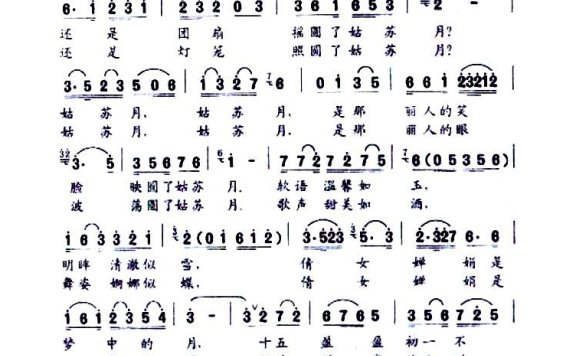 6·1 2321 2 3 3 6 1 6 5 3 2 -
还是 团扇 摇圆了姑苏 月?
还是 灯笼 照圆了姑苏 月?
3·5 2 3 5 0 6 1 3 2 7 6 0 1 3 5 6 6 1 2321 2
姑苏月, 姑苏月, 是那 丽人的笑
姑苏月, 姑苏月, 是那 丽人的眼
3· 5 3 5 6 7 6 1 - 7 7 2 7 2 7 5 6 (0 5 3 5 6)
脸 映圆了姑苏月. 软语温馨如 玉,
波 荡圆了姑苏月. 歌声甜美如 酒,
1 6 3 3 2 1 2 (0 1 6 1 2) 3·523 5·3 2·327 6·6
明眸清澈似 雪, 倩女 婵娟是
舞姿婀娜似 蝶, 倩女 婵娟是
梦中的月, 十五盈盈初一不